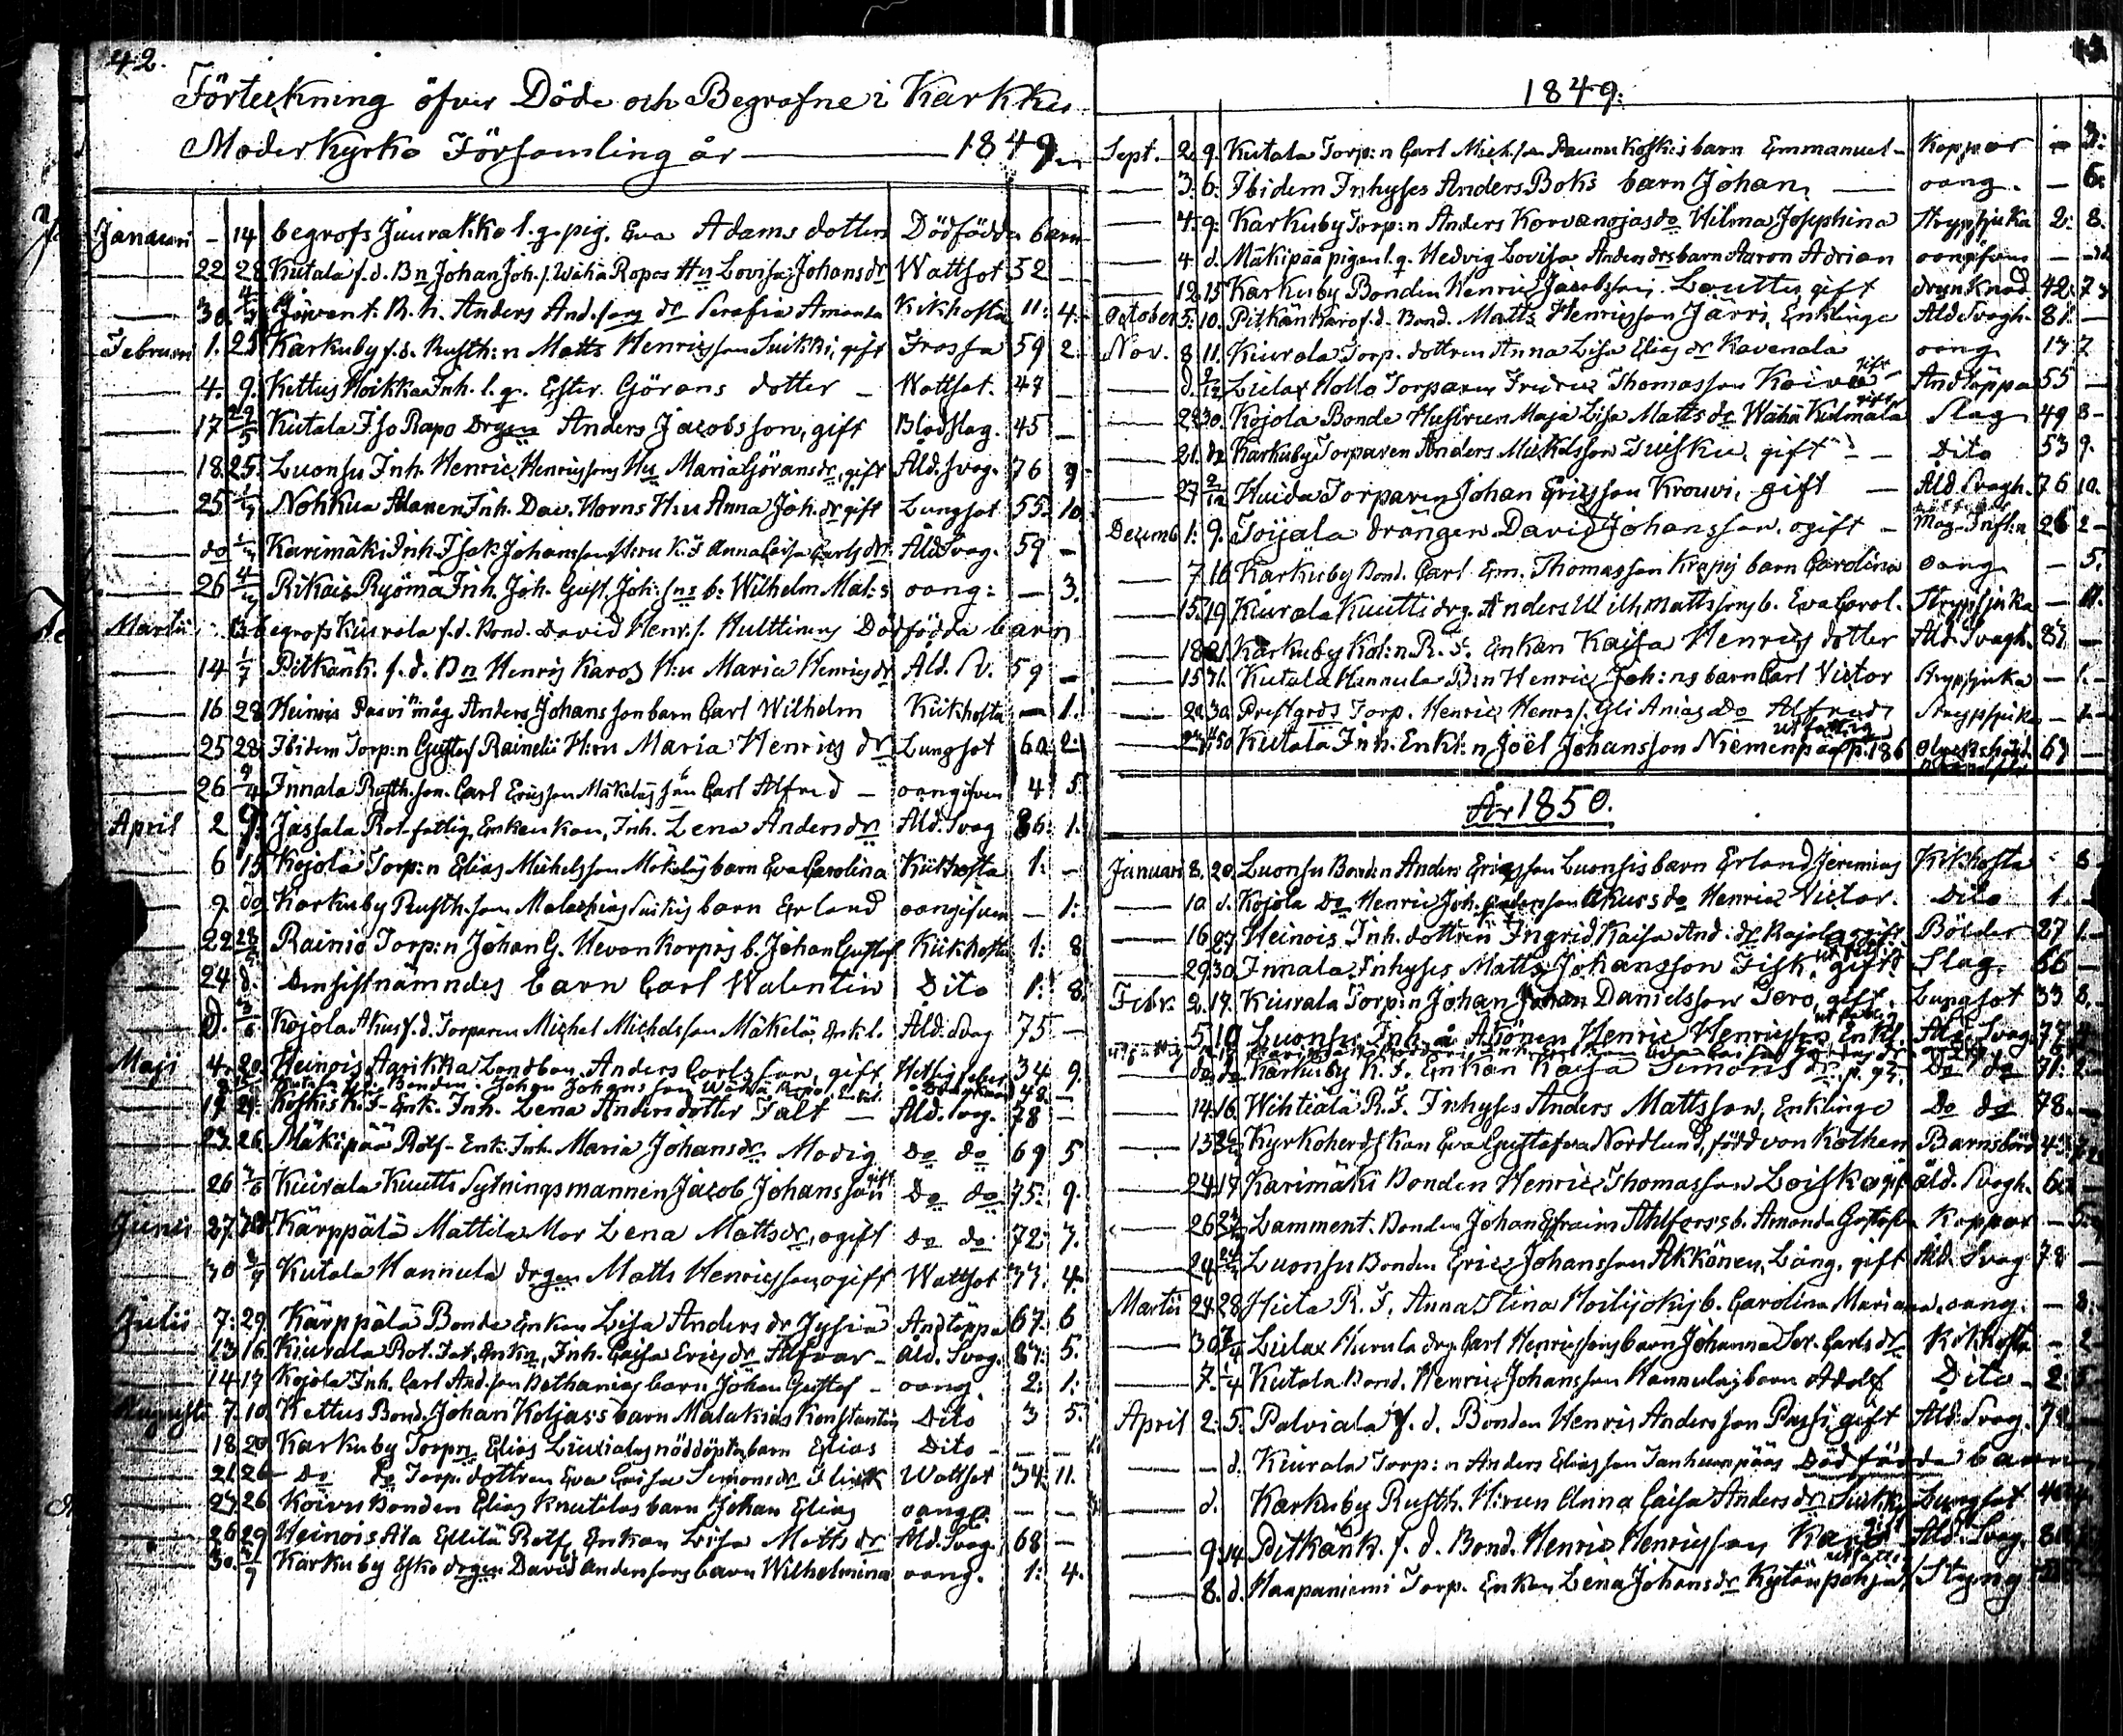 42.
Förteckning öfver Döde och Begrafne i Karkku
Moderkyrko Församling år — 1849.
Januari - 14 begrofs Juurakko l. q. pig. Eva Adams dotters Dödfödda barn
22 28 Kutala f. d. Bn Johan Joh. s. Wähä Ropos Hu Lovisa Johans dr Wattsot 52 —
30. Anders And. sons dr Serafia Amanda Kikhosta 11: 4:
Februari 1. 25 Karkuby f. d. Rusth:n Matts Henricsson Suikki, gift Frossa 59 2
4. 9. Kettus Inh. l. q. Ester Görans dotter — Wattsot. 47 —
17 Kutala Iso Rapo Drgen Anders Jacobsson, gift Blodslag. 45 —
18. 25. Luonsu Inh. Henric Henricssons Hu Maria Görans dr, gift Åld. svag. 76 9
25 Nohkua Alanen Inh. Dav. Horns H:u Anna Joh. dr gift Lungsot 55. 10
do Karimäki Inh. Isak Johanssons H:ru Carls dr. Åld. Svag. 59 —
26 Rikais Ryömä Inh. Joh. Gust. Joh: sns b: Wilhelm Mat:s oang: — 3.
Martii begrofs Kiurala f. d. Bond. David Henr. s. Hulttinens Dödfödda barn
14 Pitkänk. f. d. Bn Henrics Karos H:u Maria Henrics dr Åld. Sv. 59 —
16 28 Heinois Pasvi måg Anders Johanssons barn Carl Wilhelm Kikhosta — 1.
25 28 Ibidem Torp:n Gustaf Rainelii H:ru Maria Henrics dr Lungsot 60 2:
26 Innala Rusth. son. Carl Ericsson Mäkeläs son Carl Alfred — oangifven 4 5
April 2 9. Jassala Rot-fattig, Enkan, Inh. Lena Anders dr Åld. Svag 86: 1.
6 15 Kojola Torp:n Elias Michelsson Mäkeläs barn Eva Carolina Kikhosta 1: —
9 do Karkuby Rusth. son Malachias Suikis barn Erland oangifven — 1:
22 Rainio Torp:n Johan G. Hevonkorpis b. Johan Gustaf Kikhosta 1: 8
24 d. densistnämndes barn Carl Walentin Dito 1: 8.
d. Kojola Akus f. d. Torparen Michel Michelsson Mäkelä, Enkl. Åld. Svag 75 —
Maji 4. 20. Heinois Aarikka Landbon Anders Carlsson, gift Hettig feber 34 9.
Bonden Johan Johansson Wähä Ropo 48
19 Koskis R. F. Enk. Inh. Lena Anders dotter Falt — Åld. svag. 78 —
23. 26. Mäkipää Rotf- Enk. Inh. Maria Johans dr. Modig do do 69 5
26 Kiurala Kuutti Sytningsmannen Jacob Johansson gift Do do 75: 9.
Junii 27. Kärppälä Mattila Mor Lena Matts dr, ogift do do 72: 7.
30 Kutala Hannula drgen Matts Henricsson, ogift Wattsot 33. 4.
Julii 7: 29 Kärppälä Bonde Enkan Lisa Anders dr Jysiä Andtäppa 67: 6
13 16 Kiurala Rot. Fat. Enkn, Inh. Caisa Erics dr Alfvar — Åld. Svag. 87: 5.
14 17 Kojola Inh. Carl And. son Bethanias barn Johan Gustaf — oang. 2: 1:
Augusti 7. 10. Kettus Bond. Johan Koljas's barn Malakias Konstantin Dito 3 5.
18 20 Karkuby Torpn Elias Liuxialas nöddöpta barn Elias Dito — —
21. 26 — do do Torp. dottren Eva Caisa Simons dr Flink Wattsot 34: 11.
23 26 Koivu Bonden Elias Knutilas barn Johan Elias oang. — —
26 29 Heinois Ala Ellilä Rotf. Enkan Lisa Matts dr Åld. Svag. 68 —
30. Karkuby Esko drgen David Anderssons barn Wilhelmina oang. 1: 4.
1849.
Sept. 2. 9. Kutala Torp:n Carl Mich. son Paunu Koskis barn Emmanuel — Koppor — 3:
3. 6. Ibidem Inhyses Anders Boks barn Johan, — oang. — 6.
4. 9. Karkuby Torp:n Anders Korvenojas do Hilma Josephina Strypsjuka 2: 8.
4 d. Mäkipää pigan l. q. Hedvig Lovisa Anders drs barn Aaron Adrian oangifven —
12. 15 Karkuby Bonden Henric Jacobsson Louttu, gift 42: 7
October 5: 10. Pitkänkaro f. d. Bond. Matts Henricsson Järri, Enklinge Åld. Svagh. 81. —
Nov. 8 11. Kiurala Torp. dottren Anna Lisa Elias dr Kavenala oang. 13 7
d. Liulax Hollo Torparen Fredric Thomasson Koivu gift Andtäppa 55 —
Kojola Bonde Hustrun Maja Lisa Matts dr Wähä Kulmala Slag 49 8 —
21. do Karkuby Torparen Anders Mickelsson Tuisku, gift — Dito 53 9.
27 Huida Torparen Johan Ericsson Krouvi, gift — Åld. Svagh. 76 10.
Decemb. 1: 9. Toijala drängen David Johansson. ogift — Mag-Infl:n 26 2 —
7 16 Karkuby Bond. Carl Em. Thomasson Krapis barn Carolina oang. — 5.
15. 19. Kiurala Kuutti drg. Anders Wilh. Mattssons b. Eva Carol. Strypsjuka — 11.
18 21 Karkuby Kol:n R. F. Enkan Kaisa Henrics dotter Åld. Svagh. 87 —
15 Kutala Hannula B:n Henric Joh:ns barn Carl Victor Strypsjuka — 1. —
Prestgrds Torp. Henric Henrs. Yli Anias do Alfred Strypsjuka — 1. —
Kutala Inh. Enkl:n Joël Johansson Niemenpää p. 186 67 —
År 1850.
Januari 8. 20. Luonsu Bonden Anders Ericsson Luonsis barn Erland Jeremias Kikhosta 8
10 d. Kojola Do Henric Joh. Akus's do Henric Victor. Dito 1. —
16 27 Heinois Inh. dottren Ingrid Kaisa And. dr Kojola ogift Bölder 27 1. —
29 30 Innala Inhyses Matts Johansson Fisk, gift Slag. 66 —
Febr. 2. 17. Kiurala Torp:n Johan Danielsson Tero, gift. Lungsot 33 8.
5. 10 Luonsu Inh. Henric Henricsson Enkl. Åld. Svag. 77
do do Karkuby R. F. Enkan Kaisa Simons dr p. 93. Do do 71: 2.
14 16. Wihtiälä R. F. Inhyses Anders Mattsson, Enklinge Do do 78. —
13 Kyrkoherdskan Eva Gustafva Nordlund, född von Kothen Barnsbörd
24 17 Karimäki Bonden Henric Thomasson Loiska gift åld. Svagh.
26 Lamment. Bonden Johan Efraim Ahlfors's b. Amanda Gustafva Koppor —
24 Luonsu Bonden Eric Johansson Akkönen, Lång, gift Åld. Svag 78 —
Martii 24 28 Hieta R. F. Anna Stina Hoilijokis b. Carolina Mariana oang. — 8.
30 Liulax Hurula drg. Carl Henricssons barn Johanna Ser. Carls dr Kikhosta — 2
7. Kutala Bond. Henric Johansson Hannulas barn Adolf Dito — 2:
April 2: 5. Palviala f. d. Bonden Henric Andersson Passi, gift Åld. Svag.
— d. Kiurala Torp:n Anders Eliasson Tanhuanpääs Dödfödda barn
d. Karkuby Rusth. H:run Anna Caisa Anders dr Suikki Lungsot
9. 14 Pitkänk. f. d. Bond. Henric Henricsson Karo gift Åld. Svag.
8. d. Haapaniemi Torp. Enkan Lena Johans dr Kytönpohja Styng